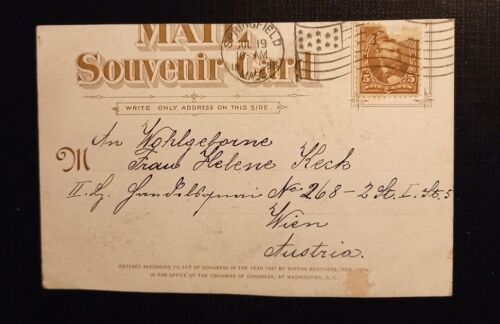 MAIL
Souvenir Card
SPRINGFIELD
JUL 19
10-AM
MASS
WRITE ONLY ADDRESS ON THIS SIDE
M An Wohlgeborne
Frau Helene Keck
II. Bz. Handelsquai No. 268 - 2 St. I. St. 5
Wien
Austria.
ENTERED ACCORDING TO ACT OF CONGRESS IN THE YEAR 1897 BY WIRTHS BROTHERS, NEW YORK,
IN THE OFFICE OF THE LIBRARIAN OF CONGRESS, AT WASHINGTON, D.C.